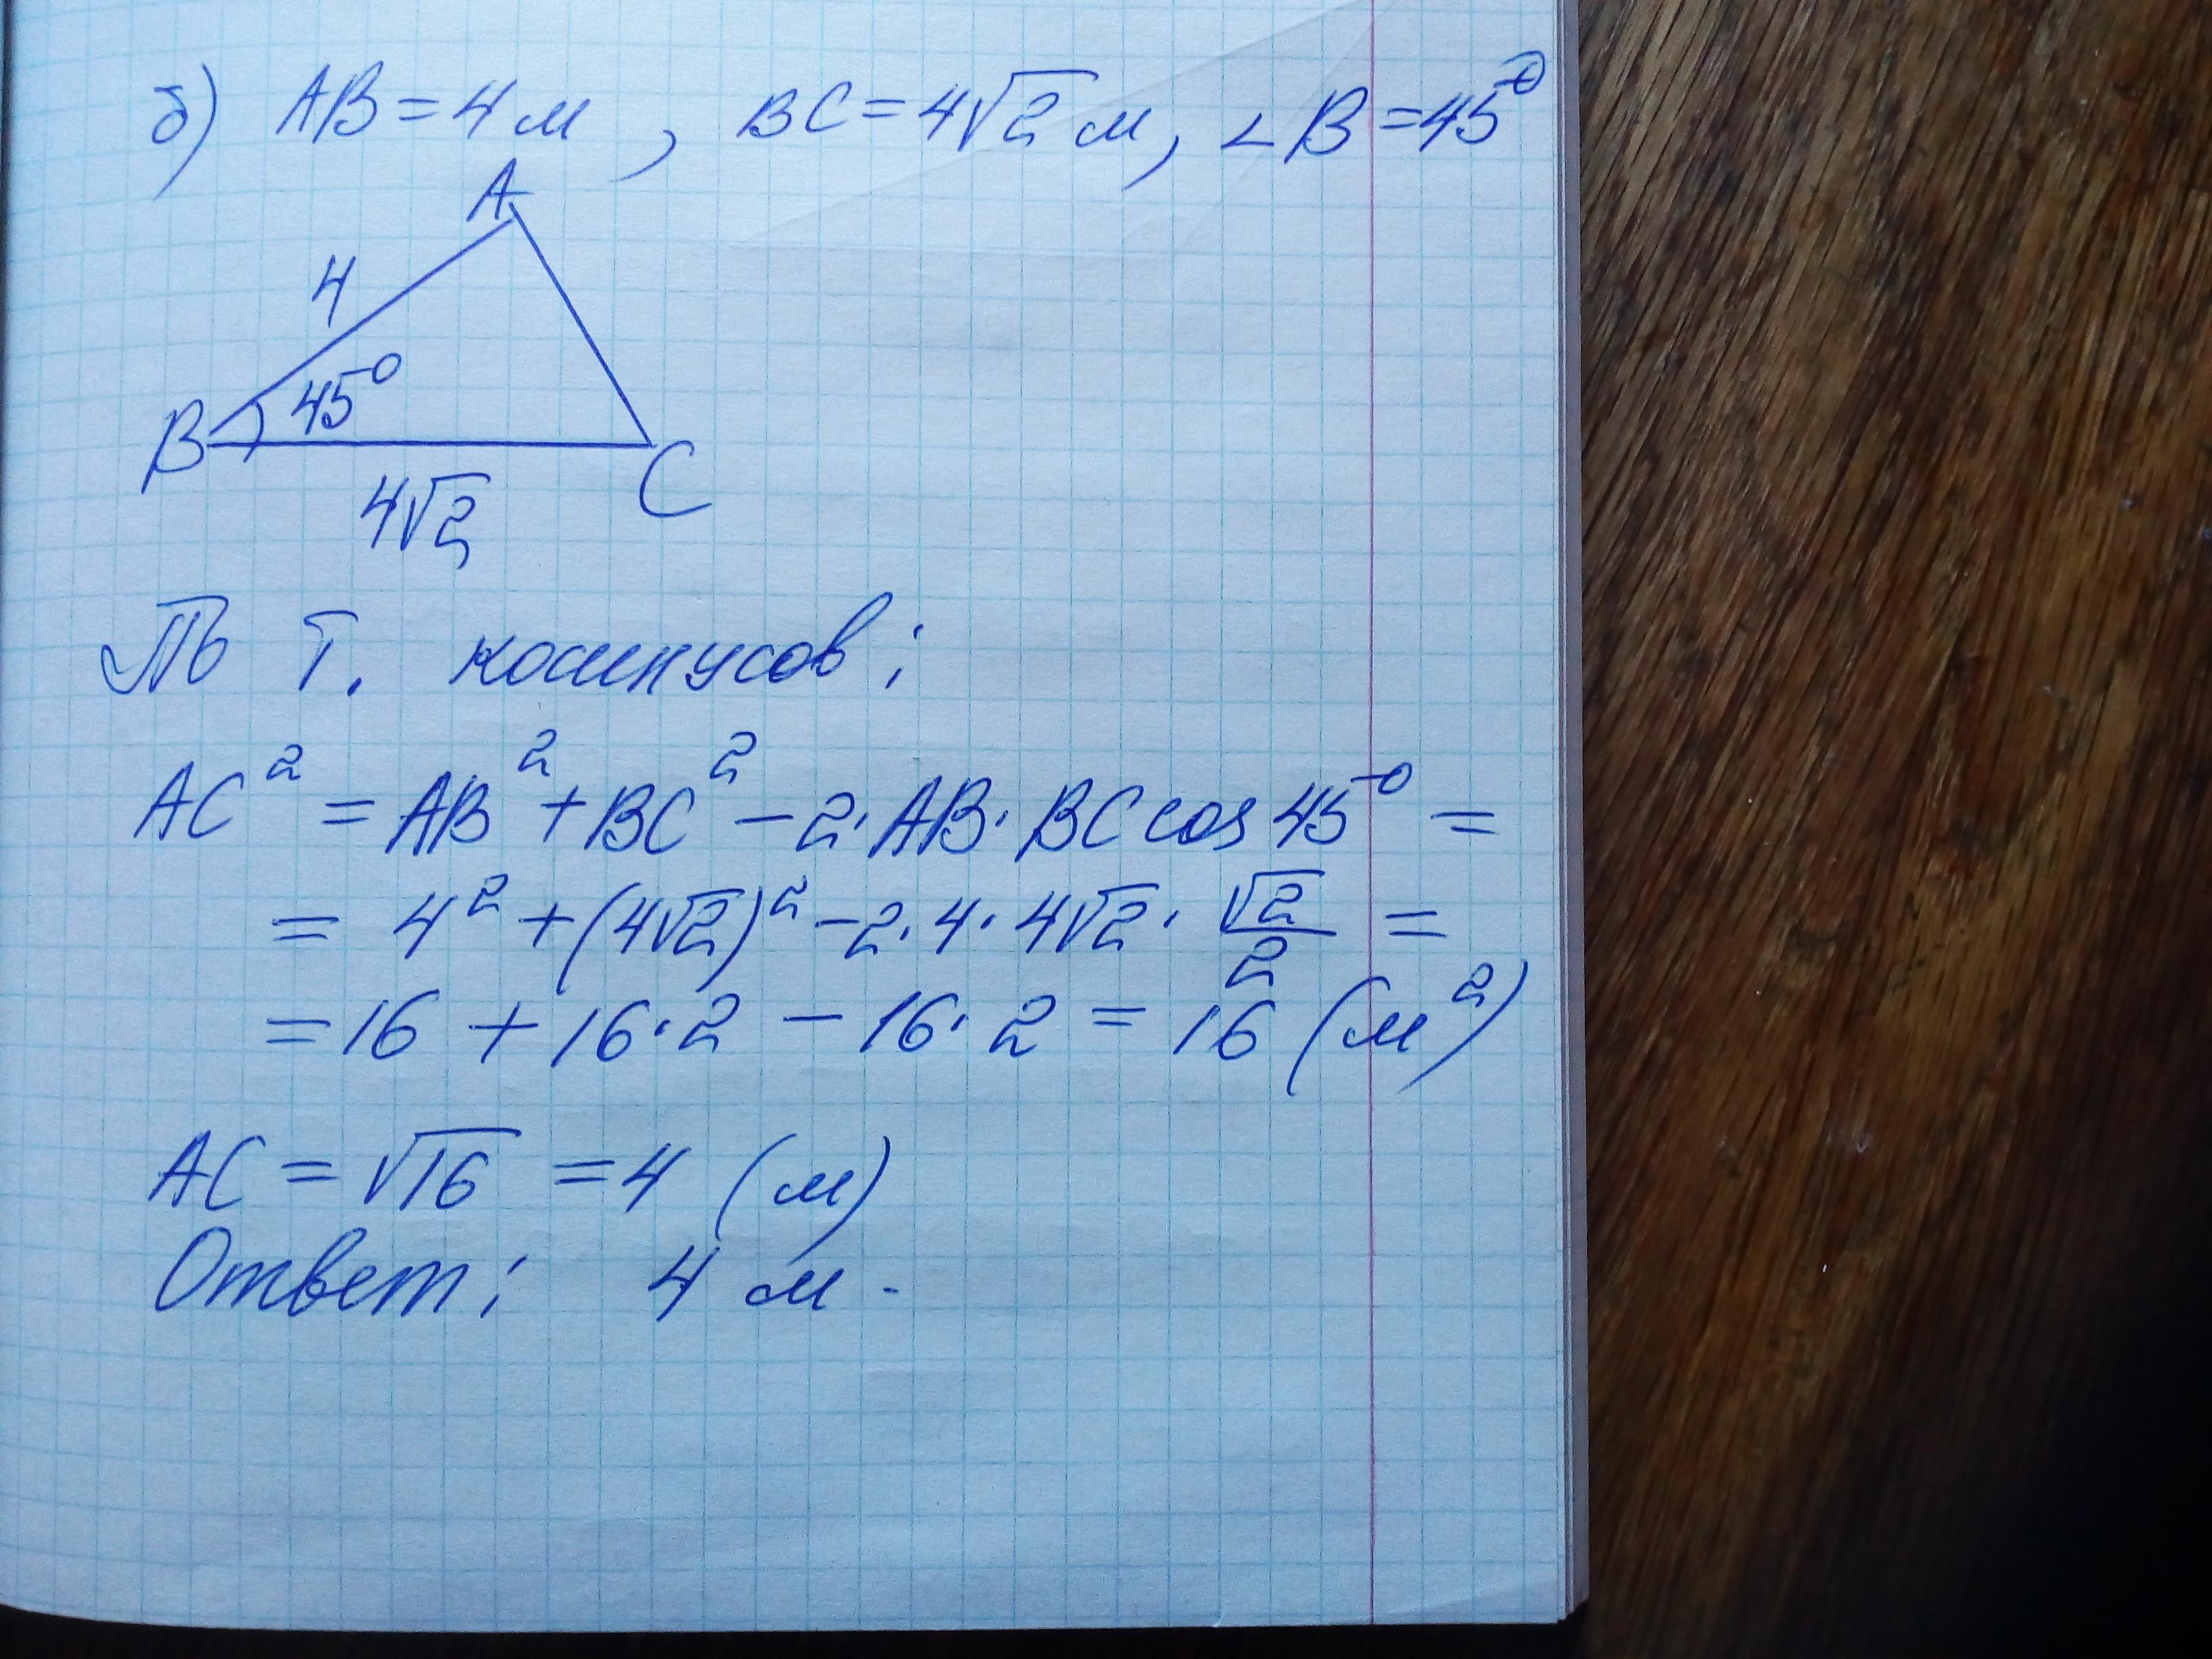 б) AB = 4 м, BC = 4√2 м, ∠B = 45°
A
4
45°
B
C
4√2
По т. косинусов:
AC² = AB² + BC² − 2·AB·BC cos 45° =
= 4² + (4√2)² − 2·4·4√2·√2/2 =
= 16 + 16·2 − 16·2 = 16 (м²)
AC = √16 = 4 (м)
Ответ: 4 м.